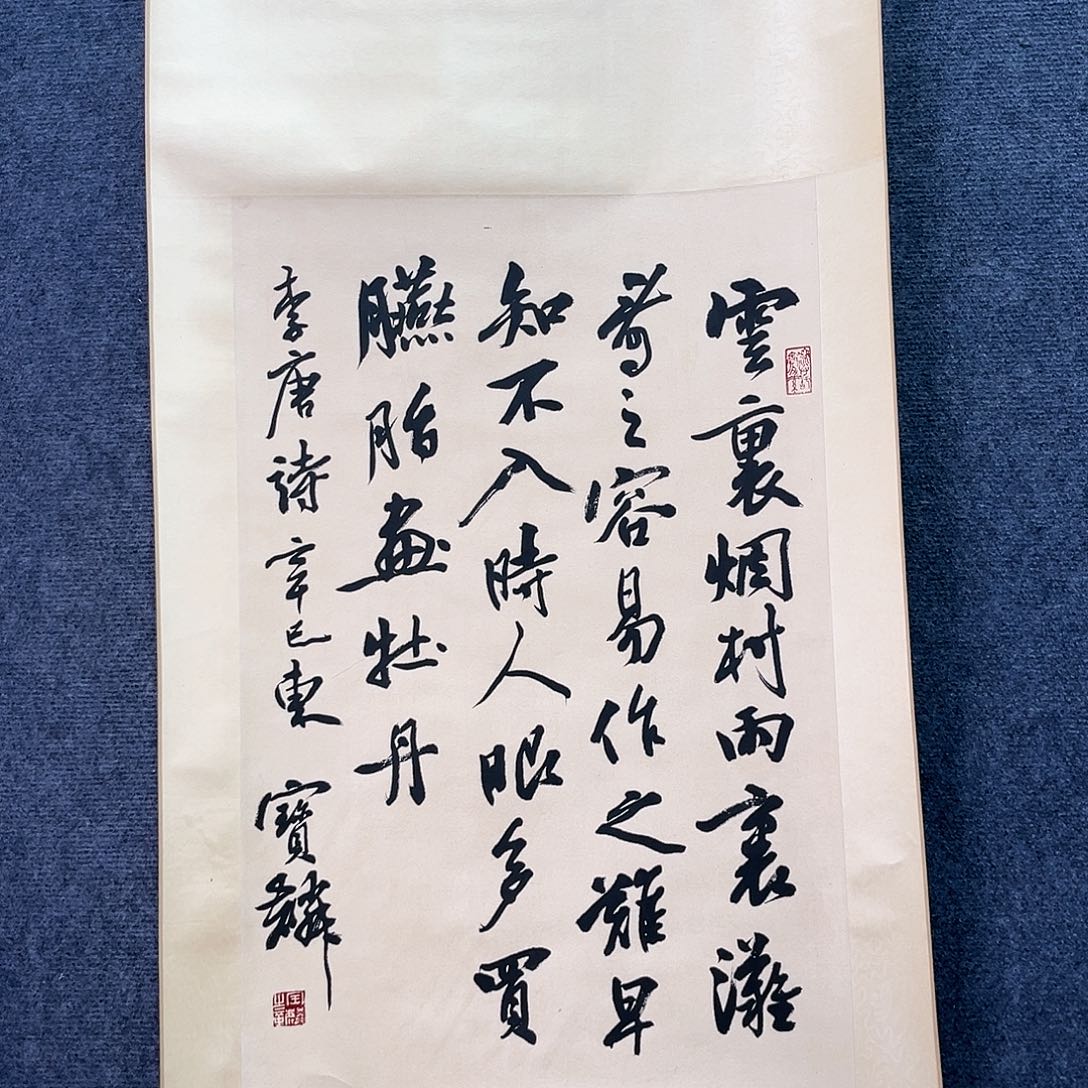 雲裏烟村雨裏灘
看之容易作之難早
知不入時人眼多買
臙脂畫牡丹
李唐詩 辛巳東 寶麟